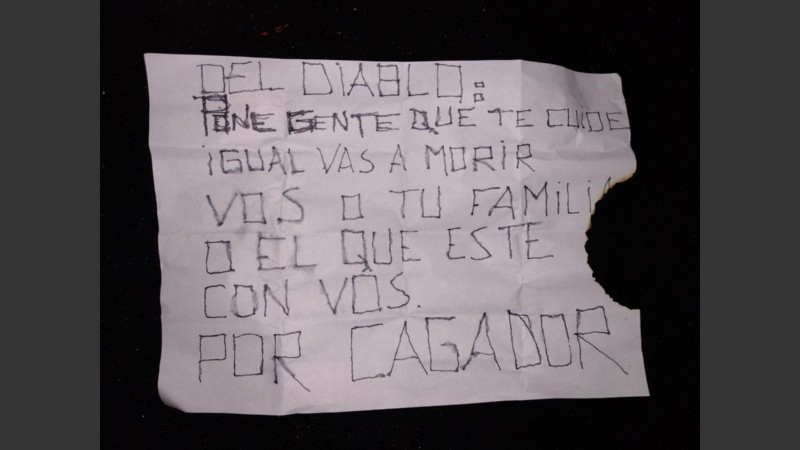 DEL DIABLO:
PONE GENTE QUE TE CUIDE
IGUAL VAS A MORIR
VOS O TU FAMILIA
O EL QUE ESTE
CON VOS.
POR CAGADOR